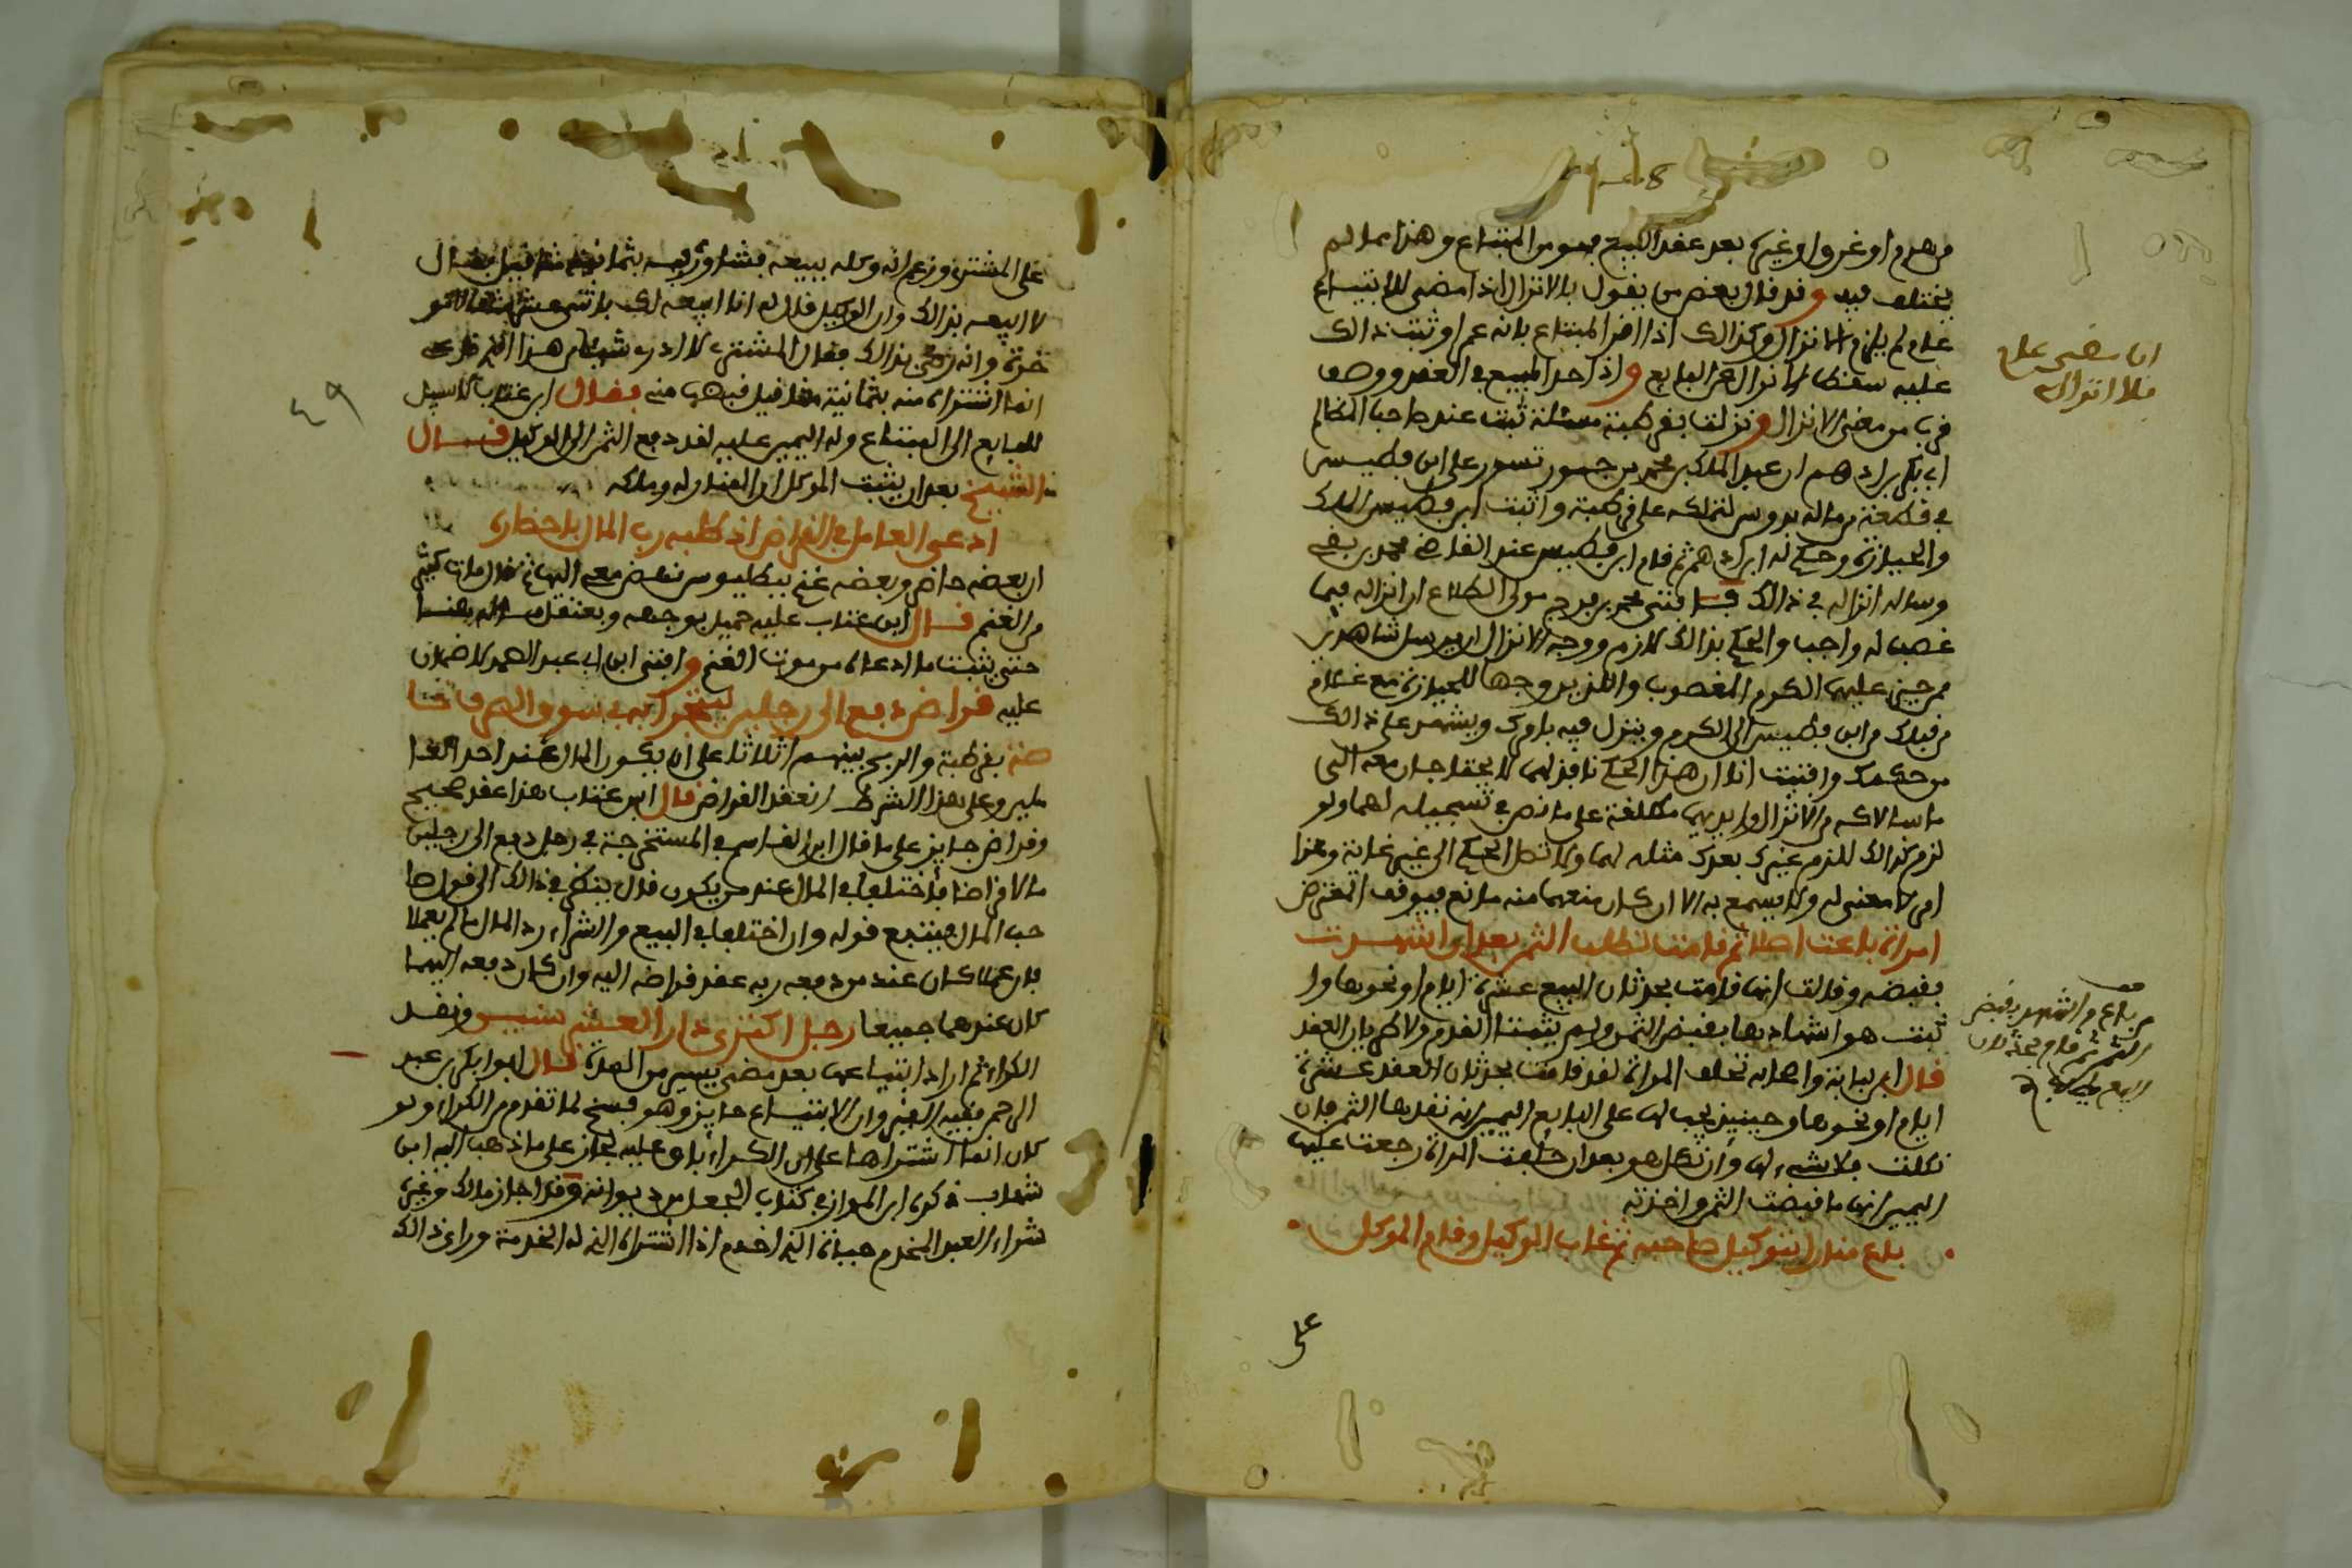 من هدم او غرس او غيره بعد عقد البيع فهو من المبتاع وهذا مما لم
يختلف فيه وقد قال بعض من يقول بالانزال اذا مضى للابتياع
عام لم يلزم الانزال وكذالك اذا اقر المبتاع بانه عمر او ثبت ذالك
عليه سقط الانزال عن البايع واذا حد المبيع في العقد ووصف
قرب من معنى الانزال ونزلت بقرطبة مسئلة ثبت عند صاحب المظالم
ابي بكر بن ادهم ان عبد الملك بن محمد بن جهور تسور على ابن فطيس
في قطعة من ماله بدوس لتملكه على قرطبة واثبت ابن فطيس الملك
والحيازة وحكم له ابن ادهم ثم قام ابن فطيس عند القاضي محمد بن بقي
وساله انزاله في ذالك فافتى محمد بن فرج مولى الطلاع ان انزاله فيما
غصب له واجب والحكم بذالك لازم ووجه الانزال ان يرسل شاهدين
ممن حيز عليهما الكرم المغصوب والذين وجها للحيازة مع غلام
من قبلك وابن فطيس الى الكرم وينزل فيه بامرك ويشهد على ذالك
من حكمك وافتيت انا ان هذا الحكم نافذ لهما لا يحتاجان معه الى
ما سالاك من الانزال وايديهما مطلقة على ما نص في تسجيله لهما ولو
لزم كذالك للزم غيرك بعدك مثله لهما ولاتصل الحكم الى غير غاية وهذا
امر لا معنى له ولا يسمع به الا ان كان منعهما منه مانع فيوقف المعترض
امراة باعت املاكا ثم قامت تطلب الثمن بعد ان اشهدت
بقبضه وقالت انها قامت بحدثان البيع عشرة ايام او نحوها وا
ثبت هو اشهادها بقبض الثمن ولم يثبتا القدم ولا كم بان العقد
قال ابن لبابة واصحابه تحلف المراة لقد قامت بحدثان العقد عشرة
ايام او نحوها وحينيذ يجب لها على البايع اليمين انه نقدها الثمن فان
نكلت فلا شيء لها وان نكل هو بعد ان حلفت المراة رجعت عليها
اليمين انها ما قبضت الثمن واخذته
باع فدان بتوكيل صاحبه ثم غاب الوكيل وقام الموكل
على
ان مضى عام
فلا انزال
من باع واشهد بقبض
الثمن ثم قام بحدثان
على المشتري وزعم انه وكله ببيعه فشاوره فيه بثمانية مثاقيل فقال
لا ابيعه بذالك وان الوكيل قال له انا ابيعه لك باثني عشر مثقالا
وانه رضي بذالك فقال المشتري لا ادري شيا من هذا
انما اشتراه منه بثمانية مثاقيل قبضها منه فقال ابن عتاب لا سبيل
للبايع الى المبتاع وله اليمين عليه لقد دفع الثمن الى الوكيل قال
الشيخ بعد ان يثبت الموكل ان الفدان له وملكه
ادعى العامل في القراض اذ طلبه رب المال باحضاره
ان بعضه حاضر وبعضه غنم ببطليوس نهض معه اليها ثم قال مات كثير
من الغنم قال ابن عتاب عليه حميل بوجهه ويعتقل ماله هنا
حتى يثبت ما ادعاه من موت الغنم وافتى ابن ابي عبد الصمد لا ضمان
عليه قراض دفع الى رجلين ليتجرا به في سوق الصرف
بقرطبة والربح بينهم اثلاثا على ان يكون المال عند احد العا
ملين وعلى هذا الشرط انعقد القراض قال ابن عتاب هذا عقد صحيح
وقراض جايز على ما قال ابن القاسم في المستخرجة في رجل دفع الى رجلين
مالا قراضا فاختلفا في المال عند من يكون قال ينظر في ذالك الى قول صا
حب المال فيتبع قوله وان اختلفا في البيع والشراء رد المال ما لم يعملا
فان عملا كان عند من دفعه ربه عقد قراضه اليه وان كان دفعه اليهما
كان عندهما جميعا رجل اكترى دارا لعشر سنين ونقد
الكراء ثم اراد ابتياعها بعد مضي يسير من المدة قال ابو بكر بن عبد
الرحمن فقيه القيروان الابتياع جايز وهو فسخ لما تقدم من الكراء ولو
كان انما اشتراها على ان الكراء باق عليه لجاز على ما ذهب اليه ابن
شهاب ذكره ابن المواز في كتاب الجعل من ديوانه وقد اجاز مالك وغيره
شراء العبد المخدم حياة الذي اخدم اذا اشتراه الذي له الخدمة وراى ذالك
٤٩